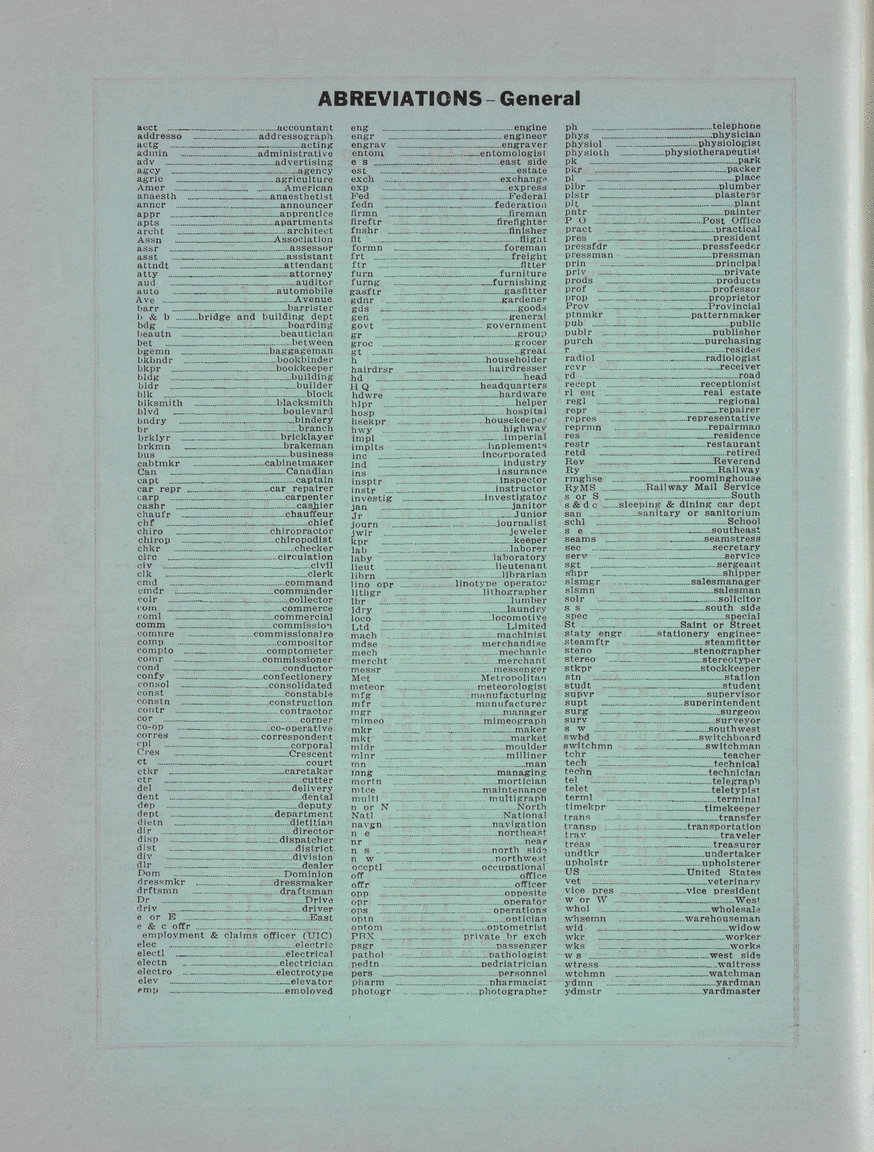 ABREVIATIONS – General
acct accountant
addresso addressograph
actg acting
admin administrative
adv advertising
agcy agency
agric agriculture
Amer American
anaesth anaesthetist
anncr announcer
appr apprentice
apts apartments
archt architect
Assn Association
assr assessor
asst assistant
attndt attendant
atty attorney
aud auditor
auto automobile
Ave Avenue
barr barrister
b & b bridge and building dept
bdg boarding
beautn beautician
bet between
bgemn baggageman
bkbndr bookbinder
bkpr bookkeeper
bldg building
bldr builder
blk block
blksmith blacksmith
blvd boulevard
bndry bindery
br branch
brklyr bricklayer
brkmn brakeman
bus business
cabtmkr cabinetmaker
Can Canadian
capt captain
car repr car repairer
carp carpenter
cashr cashier
chaufr chauffeur
chf chief
chiro chiropractor
chirop chiropodist
chkr checker
circ circulation
civ civil
clk clerk
cmd command
cmdr commander
colr collector
com commerce
coml commercial
comm commission
comnre commissionaire
comp compositor
compto comptometer
comr commissioner
cond conductor
confy confectionery
consol consolidated
const constable
constn construction
contr contractor
cor corner
co-op co-operative
corres correspondent
cpl corporal
Cres Crescent
ct court
ctkr caretaker
ctr cutter
del delivery
dent dental
dep deputy
dept department
dietn dietitian
dir director
disp dispatcher
dist district
div division
dlr dealer
Dom Dominion
dressmkr dressmaker
drftsmn draftsman
Dr Drive
driv driver
e or E East
e & c offr
employment & claims officer (UIC)
elec electric
electl electrical
electn electrician
electro electrotype
elev elevator
emp employed
eng engine
engr engineer
engrav engraver
entom entomologist
e s east side
est estate
exch exchange
exp express
Fed Federal
fedn federation
firmn fireman
fireftr firefighter
fnshr finisher
flt flight
formn foreman
frt freight
ftr fitter
furn furniture
furng furnishing
gasftr gasfitter
gdnr gardener
gds goods
gen general
govt government
gr group
groc grocer
gt great
h householder
hairdrsr hairdresser
hd head
H Q headquarters
hdwre hardware
hlpr helper
hosp hospital
hsekpr housekeeper
hwy highway
impl imperial
implts implements
inc incorporated
ind industry
ins insurance
insptr inspector
instr instructor
investig investigator
jan janitor
Jr Junior
journ journalist
jwlr jeweler
kpr keeper
lab laborer
laby laboratory
lieut lieutenant
librn librarian
lino opr linotype operator
lithgr lithographer
lbr lumber
ldry laundry
loco locomotive
Ltd Limited
mach machinist
mdse merchandise
mech mechanic
mercht merchant
messr messenger
Met Metropolitan
meteor meteorologist
mfg manufacturing
mfr manufacturer
mgr manager
mimeo mimeograph
mkr maker
mkt market
mldr moulder
mlnr milliner
mn man
mng managing
mortn mortician
mtce maintenance
multi multigraph
n or N North
Natl National
navgn navigation
n e northeast
nr near
n s north side
n w northwest
occptl occupational
off office
offr officer
opp opposite
opr operator
ops operations
optn optician
optom optometrist
PBX private br exch
psgr passenger
pathol pathologist
pedtn pedriatrician
pers personnel
pharm pharmacist
photogr photographer
ph telephone
phys physician
physiol physiologist
physioth physiotherapeutist
pk park
pkr packer
pl place
plbr plumber
plstr plasterer
plt plant
pntr painter
P O Post Office
pract practical
pres president
pressfdr pressfeeder
pressman pressman
prin principal
priv private
prods products
prof professor
prop proprietor
Prov Provincial
ptnmkr patternmaker
pub public
publr publisher
purch purchasing
r resides
radiol radiologist
rcvr receiver
rd road
recept receptionist
rl est real estate
regl regional
repr repairer
repres representative
reprmn repairman
res residence
restr restaurant
retd retired
Rev Reverend
Ry Railway
rmghse roominghouse
RyMS Railway Mail Service
s or S South
s & d c sleeping & dining car dept
san sanitary or sanitorium
schl School
s e southeast
seams seamstress
sec secretary
serv service
sgt sergeant
shpr shipper
slsmgr salesmanager
slsmn salesman
solr solicitor
s s south side
spec special
St Saint or Street
staty engr stationery engineer
steamftr steamfitter
steno stenographer
stereo stereotyper
stkpr stockkeeper
stn station
studt student
supvr supervisor
supt superintendent
surg surgeon
surv surveyor
s w southwest
swbd switchboard
switchmn switchman
tchr teacher
tech technical
techn technician
tel telegraph
telet teletypist
terml terminal
timekpr timekeeper
trans transfer
transp transportation
trav traveler
treas treasurer
undtkr undertaker
upholstr upholsterer
US United States
vet veterinary
vice pres vice president
w or W West
whol wholesale
whsemn warehouseman
wid widow
wkr worker
wks works
w s west side
wtress waitress
wtchmn watchman
ydmn yardman
ydmstr yardmaster